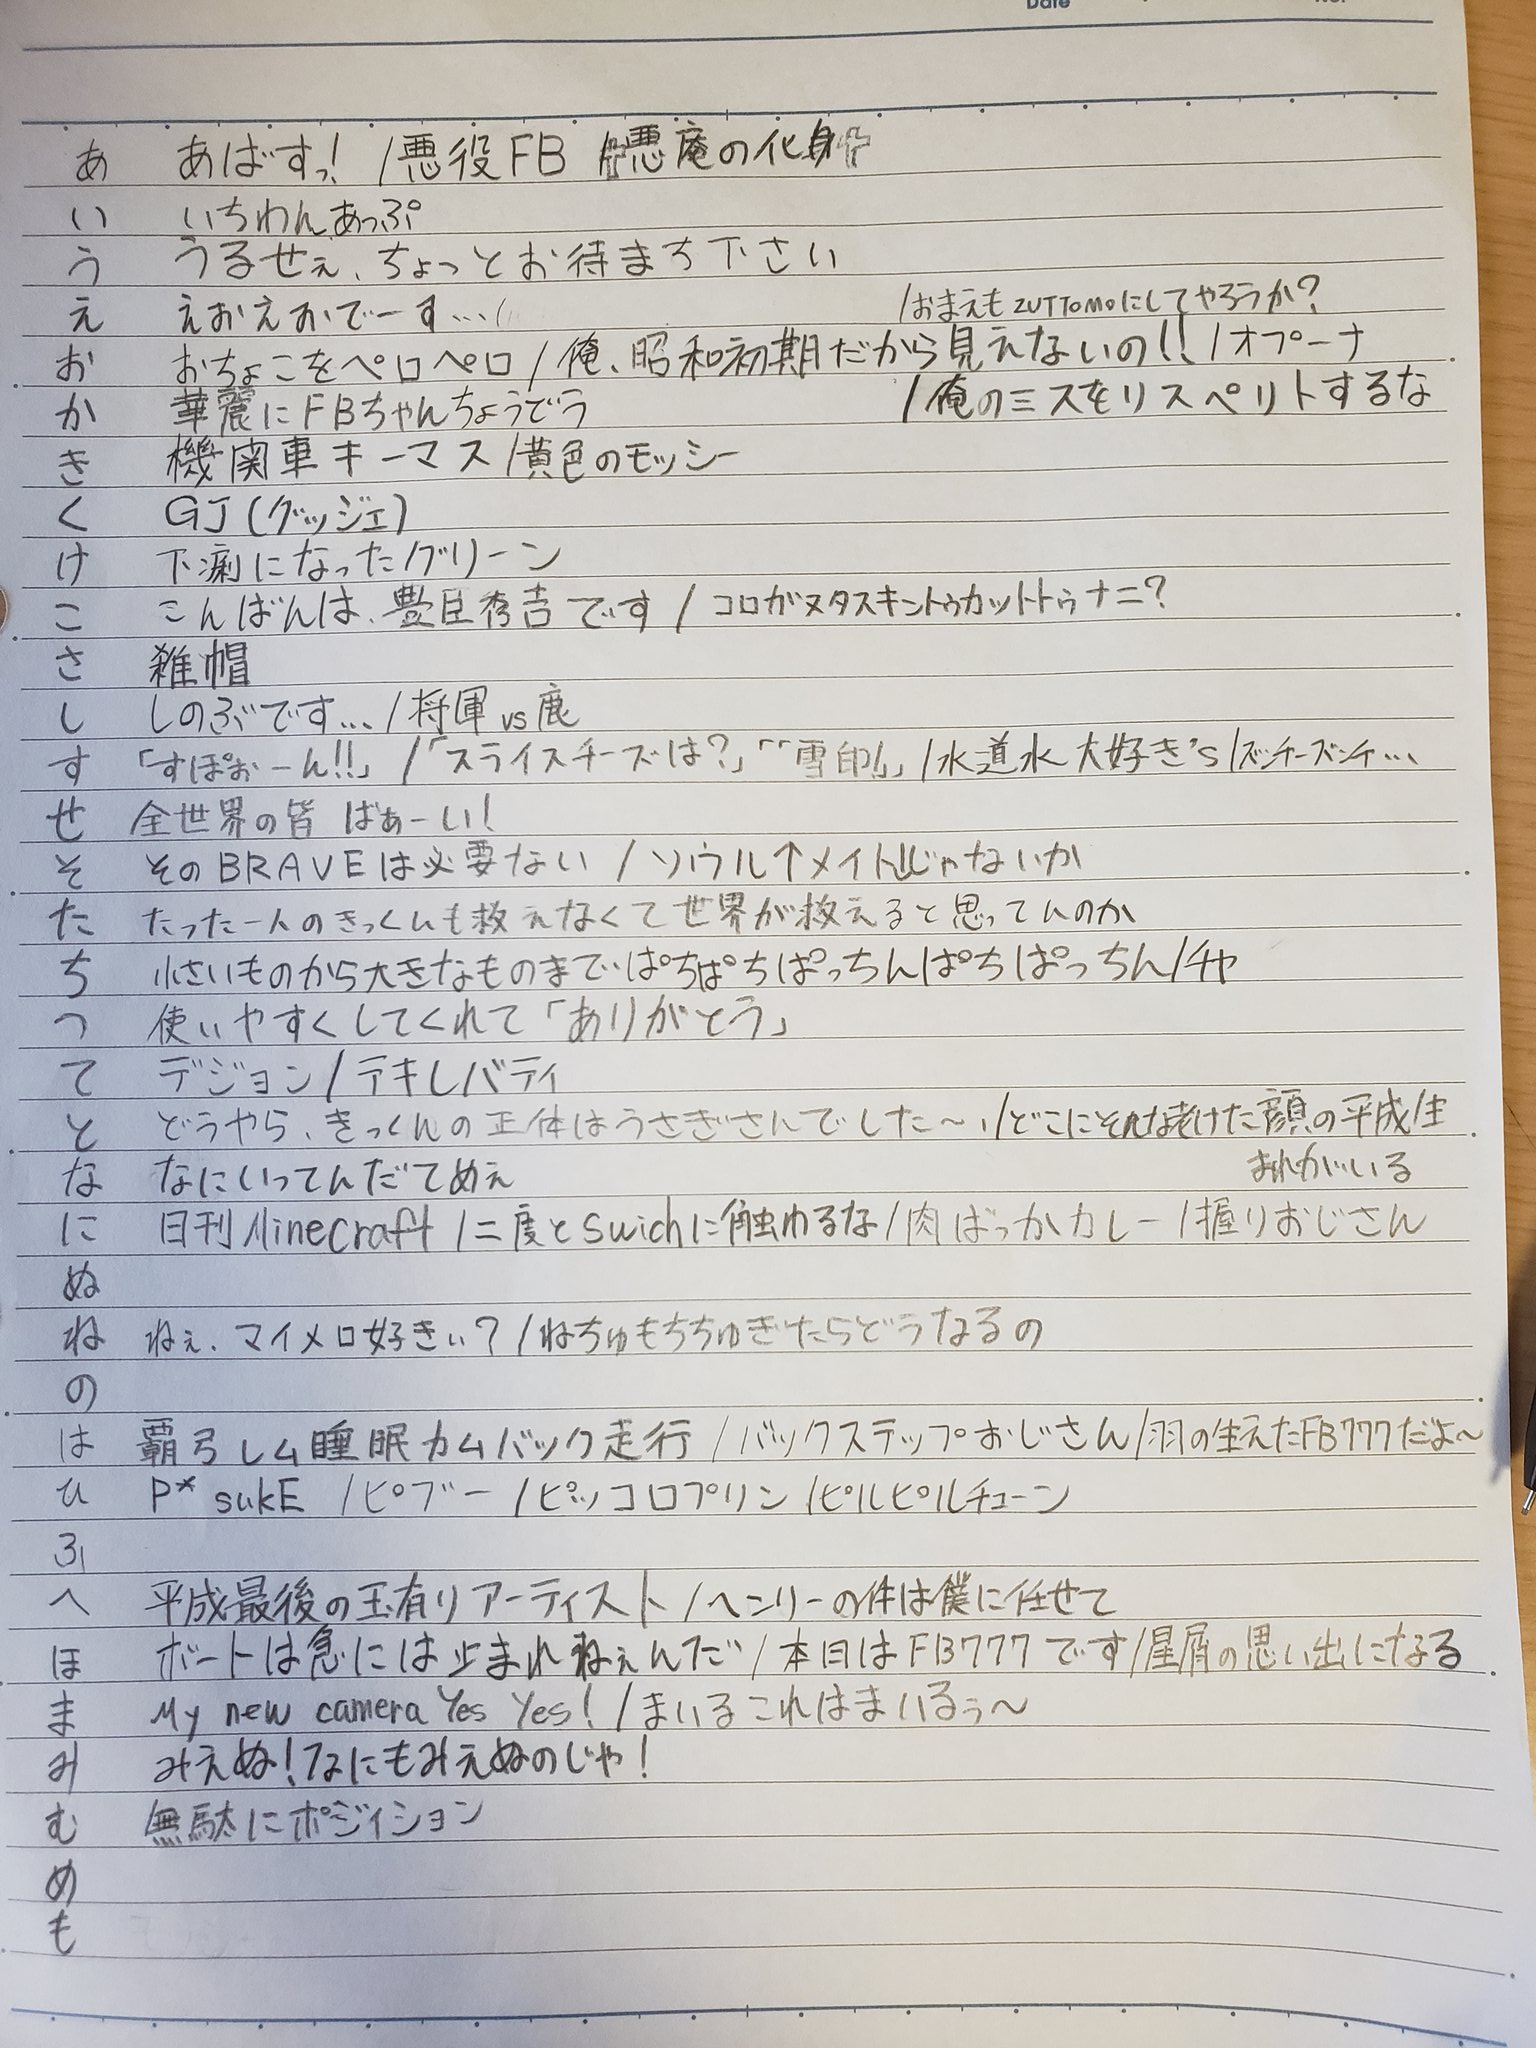 Date
No.
あ あばすっ! /悪役FB /✞悪魔の化身✞
い いちわんあっぷ
う うるせぇ、ちょっとお待まち下さい
え えおえおでーす…/ /おまえもZUTTOMOにしてやろうか?
お おちょこをペロペロ/俺、昭和初期だから見えないの!! /オプーナ
か 華麗にFBちゃんちょうでう /俺のミスをリスペリトするな
き 機関車キーマス/黄色のモッシー
く GJ(グッジェ)
け 下痢になったグリーン
こ こんばんは、豊臣秀吉です/コロガヌタスキントゥカットトゥナニ?
さ 雑帽
し しのぶです…/将軍vs鹿
す 「すぽぉーん!!」/「スライスチーズは?」「「雪印!」/水道水大好き's/ズンチーズンチ…
せ 全世界の皆 ばぁーい!
そ そのBRAVEは必要ない/ソウル↑メイト↓じゃないか
た たった一人のきっくんも救えなくて世界が救えると思ってんのか
ち 小さいものから大きなものまで、ぱちぱちぱっちんぱちぱっちん/チャ
つ 使いやすくしてくれて「ありがとう」
て デジョン/テキレバティ
と どうやら、きっくんの正体はうさぎさんでした〜、/どこにそんな老けた顔の平成生
な なにいってんだてめぇ まれがいる
に 日刊Minecraft/二度とswichに触わるな/肉ばっかカレー/握りおじさん
ぬ
ね ねぇ、マイメロ好きぃ?/ねちゅもちちゅぎたらどうなるの
の
は 覇弓レム睡眠カムバック走行/バックステップおじさん/羽の生えたFB777だよ〜
ひ P*sukE /ピブー/ピッコロプリン/ピルピルチューン
ふ
へ 平成最後の玉有りアーティスト/ヘンリーの件は僕に任せて
ほ ボートは急には止まれねぇんだ/本日はFB777です/星屑の思い出になる
ま My new camera Yes Yes!/まいるこれはまいるぅ〜
み みえぬ!なにもみえぬのじゃ!
む 無駄にポジィション
め
も